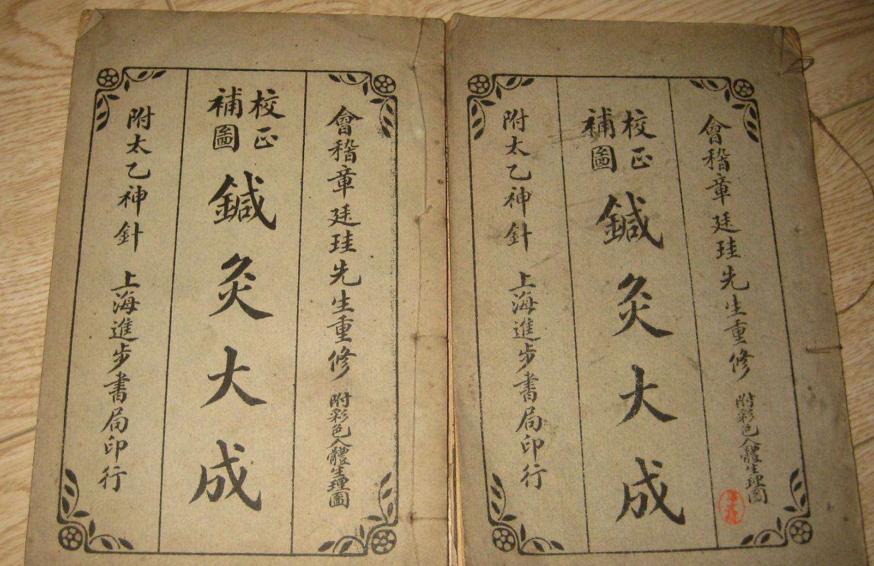 會稽章廷珪先生重修 附彩色人體生理圖
校正
補圖
鍼灸大成
附太乙神針 上海進步書局印行
會稽章廷珪先生重修 附彩色人體生理圖
校正
補圖
鍼灸大成
附太乙神針 上海進步書局印行